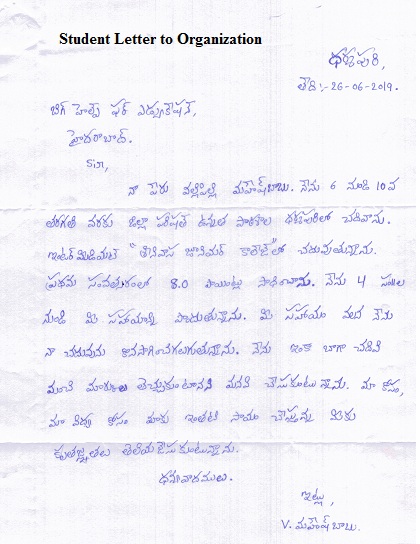 Student Letter to Organization
ధర్మపురి,
తేది:-26-06-2019.
బిగ్ హెల్ప్ ఫర్ ఎడ్యుకేషన్,
హైదరాబాద్.
Sir,
నా పేరు వల్లెపల్లి మహేష్‌బాబు. నేను 6 నుండి 10వ
తరగతి వరకు జిల్లా పరిషత్ ఉన్నత పాఠశాల ధర్మపురిలో చదివాను.
ఇంటర్మీడియట్ " జూనియర్ కాలేజ్"లో చదువుతున్నాను.
ప్రథమ సంవత్సరంలో 8.0 పాయింట్లు సాధించాను. నేను 4 సం॥ల
నుండి మీ సహాయాన్ని పొందుతున్నాను. మీ సహాయం వలన నేను
నా చదువును కొనసాగించగలుగుతున్నాను. నేను ఇంకా బాగా చదివి
మంచి మార్కులు తెచ్చుకుంటానని మనవి చేసుకుంటున్నాను. మా కోసం,
మా విద్య కోసం మాకు ఇంతటి సాయం చేస్తున్న మీకు
కృతజ్ఞతలు తెలియజేసుకుంటున్నాను.
ధన్యవాదములు.
ఇట్లు,
V. మహేష్ బాబు.